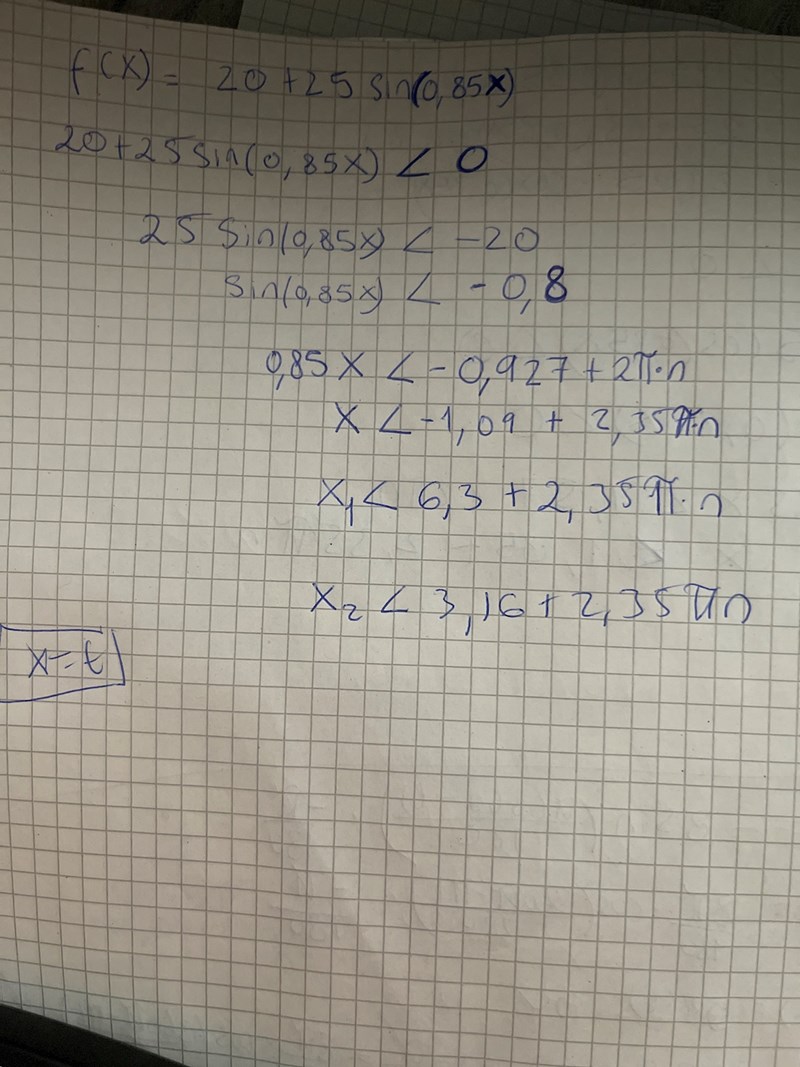 f(x) = 20 + 25 sin(0,85x)
20 + 25 sin(0,85x) < 0
25 sin(0,85x) < -20
sin(0,85x) < -0,8
0,85x < -0,927 + 2π·n
x < -1,09 + 2,35π·n
x₁ < 6,3 + 2,35π·n
x₂ < 3,16 + 2,35πn
x = t